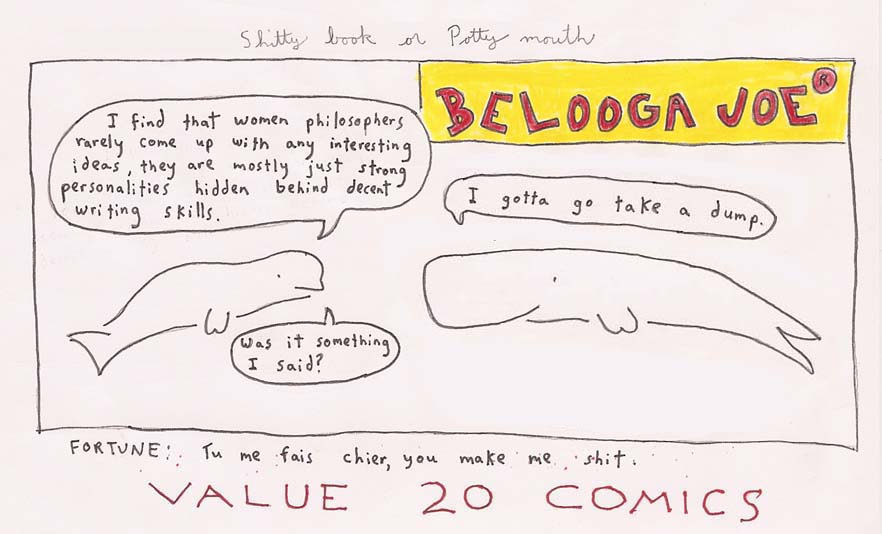 Shitty book or Potty mouth
BELOOGA JOE®
I find that women philosophers
rarely come up with any interesting
ideas, they are mostly just strong
personalities hidden behind decent
writing skills.
I gotta go take a dump.
Was it something
I said?
FORTUNE: Tu me fais chier, you make me shit.
VALUE 20 COMICS